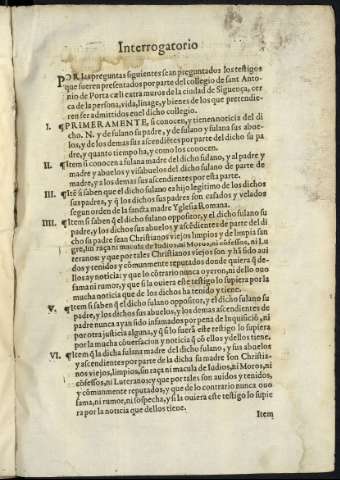 Interrogatorio
POR las preguntas siguientes sean preguntados los testigos
que fueren presentados por parte del collegio de sant Anto-
nio de Porta cæli extra muros de la ciudad de Siguença, cer
ca de la persona, vida, linage, y bienes de los que pretendie-
ren ser admitidos en el dicho collegio.
I. ¶PRIMERAMENTE, si conocen, y tienen noticia del di
cho. N. y de fulano su padre, y de fulano y fulana sus abue
los, y de los demas sus ascendiẽtes por parte del dicho su pa
dre, y quanto tiempo ha, y como los conocen.
II. ¶Item si conocen a fulana madre del dicho fulano, y al padre y
madre y abuelos y visabuelos del dicho fulano de parte de
madre, y a los demas sus ascendientes por esta parte.
III. ¶Itẽ si saben que el dicho fulano es hijo legitimo de los dichos
sus padres, y q̃ los dichos sus padres son casados y velados
segun orden de la sancta madre Yglesia Romana.
IIII. ¶Item si saben q̃ el dicho fulano oppositor, y el dicho fulano su
padre, y los dichos sus abuelos y ascẽdientes de parte del di
cho su padre sean Christianos viejos limpios y de limpia san
gre, sin raça ni macula de Iudios, ni Moros, ni cõfessos, ni Lu
teranos: y que por tales Christianos viejos son y hã sido aui
dos y tenidos y cõmunmente reputados donde quiera q̃ de-
llos ay noticia: y que lo cõtrario nunca oyeron, ni dello ouo
fama ni rumor, y que si la ouiera este testigo lo supiera por la
mucha noticia que de los dichos ha tenido y tiene.
V. ¶Item si saben q̃ el dicho fulano oppositor, y el dicho fulano su
padre, y los dichos sus abuelos, y los demas ascendientes de
padre nunca ayan sido infamados por pena de Inquisiciõ, ni
por otra justicia alguna, y q̃ si lo fuerã este testigo lo supiera
por la mucha cõuersacion y noticia q̃ cõ ellos y dellos tiene.
VI. ¶Item q̃ la dicha fulana madre del dicho fulano, y sus abuelos
y ascendientes por parte de la dicha su madre son Christia-
nos viejos, limpios, sin raça ni macula de Iudios, ni Moros, ni
cõfessos, ni Luteranos: y que por tales son auidos y tenidos,
y cõmunmente reputados, y que de lo contrario nunca ouo
fama, ni rumor, ni sospecha, y si la ouiera este testigo lo supie
ra por la noticia que dellos tiene.
Item